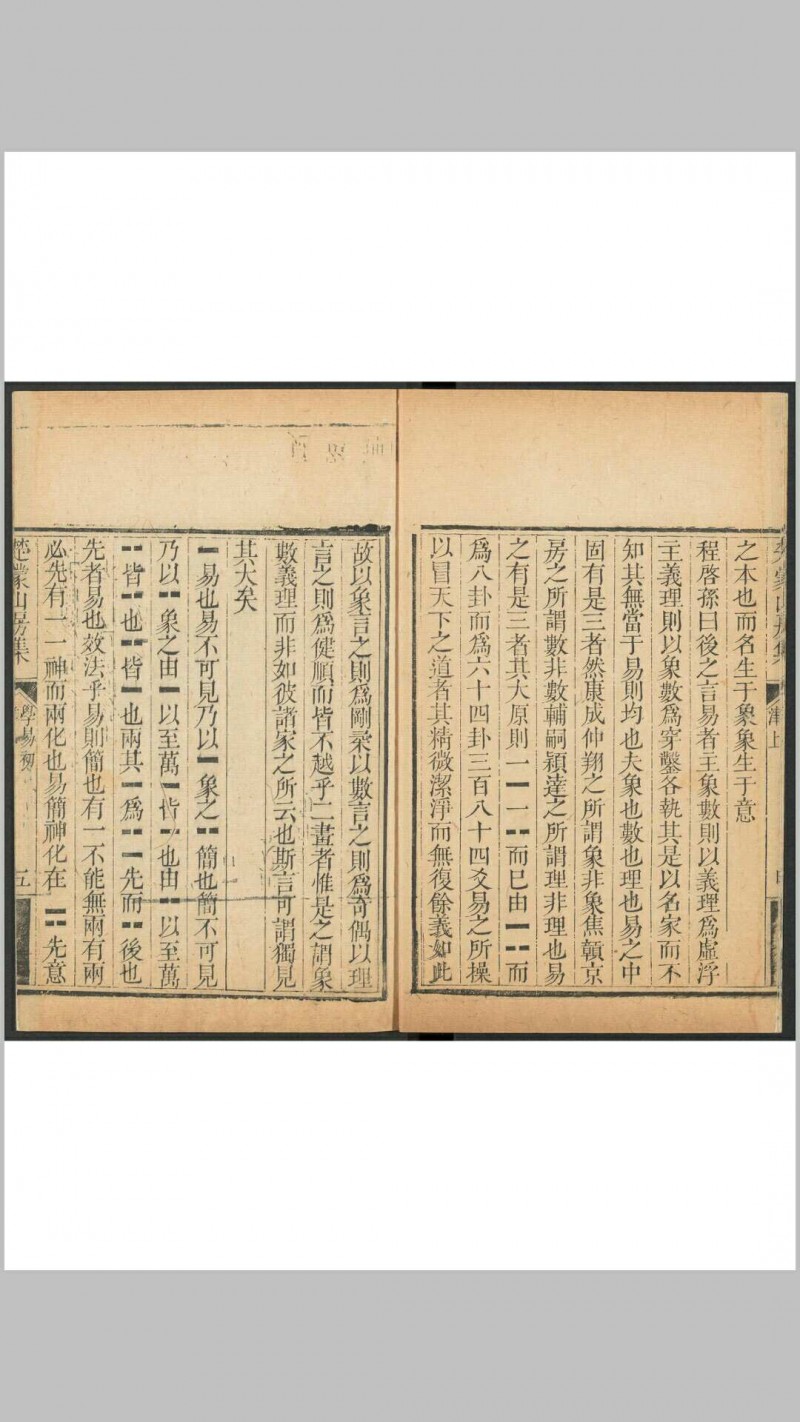 之本也而名生于象象生于意
程啓孫曰後之言易者主象數則以義理爲虛浮
主義理則以象數爲穿鑿各執其是以名家而不
知其無當于易則均也夫象也數也理也易之中
固有是三者然康成仲翔之所謂象非象焦贛京
房之所謂數非數輔嗣穎達之所謂理非理也易
之有是三者其大原則一⚊一⚋而已由⚊⚋而
爲八卦而爲六十四卦三百八十四爻易之所操
以冒天下之道者其精微潔淨而無復餘義如此
故以象言之則爲剛柔以數言之則爲奇偶以理
言之則爲健順而皆不越乎二畫者惟是之謂象
數義理而非如彼諸家之所云也斯言可謂獨見
其大矣
⚊易也易不可見乃以⚊象之⚋簡也簡不可見
乃以⚋象之由⚊以至萬⚊皆⚋也由⚋以至萬
⚋皆⚋也⚋皆⚊也兩其⚊爲⚋⚊先而⚋後也
先者易也效法乎易則簡也有一不能無兩有兩
必先有一一神而兩化也易簡神化在⚌⚏先意
楚蒙山房集
學易初
五